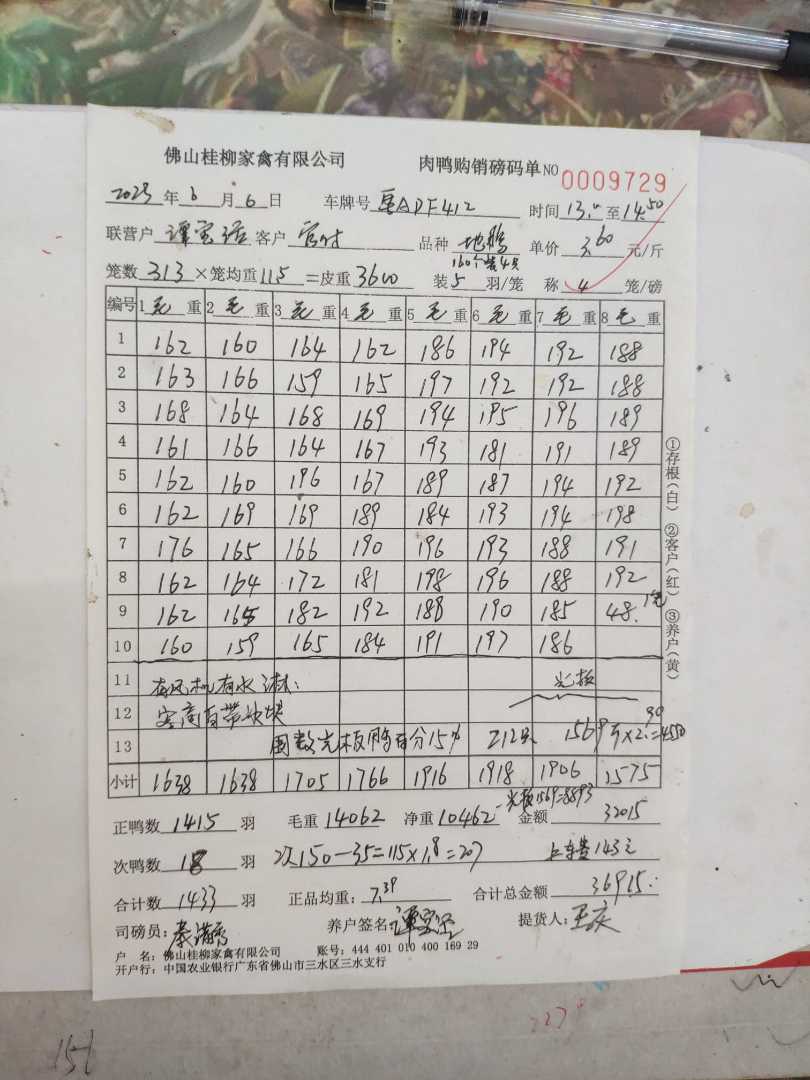 佛山桂柳家禽有限公司 肉鸭购销磅码单 NO 0009729
2023年6月6日 车牌号 ADF412 时间 13: 至 14:50
联营户 客户 品种 单价 3.60 元/斤
笼数 313 ×笼均重 11.5 =皮重 3600 装 5 羽/笼 称 4 笼/磅
编号 1毛重 2毛重 3毛重 4毛重 5毛重 6毛重 7毛重 8毛重
1 162 160 164 162 186 194 192 188
2 163 166 159 165 197 192 192 188
3 168 164 168 169 194 195 196 189
4 161 166 164 167 193 181 191 189
5 162 160 196 167 189 187 194 192
6 162 169 169 189 184 193 194 198
7 176 165 166 190 196 193 188 191
8 162 164 172 181 198 196 188 192
9 162 165 182 192 189 190 185 48.
10 160 159 165 184 191 197 186
11 有风机有水淋: 光板
12 客商自带冰块
13 212只 1569斤×2.90=4550
小计 1638 1638 1705 1766 1916 1918 1906 1575
-光板1569=8893
正鸭数 1415 羽 毛重 14062 净重 10462 金额 32015
次鸭数 18 羽 次150-35=115×1.8=207 上车费143元
合计数 1433 羽 正品均重: 7.39 合计总金额 36915.
司磅员: 养户签名: 提货人: 王庆
户 名: 佛山桂柳家禽有限公司 账号: 444 401 010 400 169 29
开户行: 中国农业银行广东省佛山市三水区三水支行
①存根(白) ②客户(红) ③养户(黄)
151